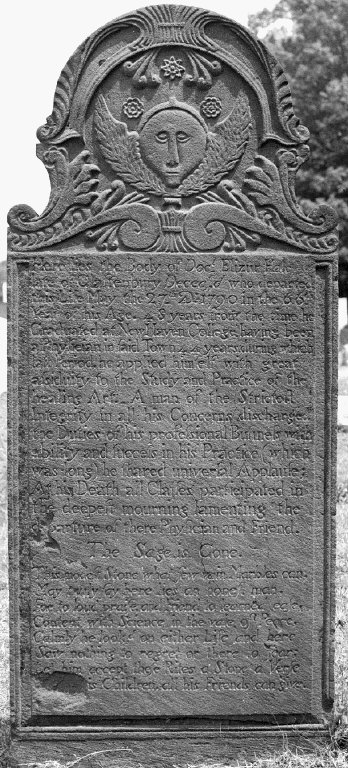 Here lies the Body of Doct. Elizur Hale
late of Glastenbury Deceas,d who departed
this Life May the 27th AD. 1790 in the 66th
Year of his Age. 48 years from the time he
Graduated at New Haven College having been
a Physician in said Town 44 years during which
period he applied himself with great
assiduity to the Study and Practice of the
healing Art. A man of the Strictest
Integrity in all his Concerns discharge
the Duties of his professional Business with
ability and success in his Practice (which
was long) he shared universal Applause
At his Death all Classes participated in
the deepest mourning lamenting the
departure of there Physician and Friend.
The Sage is Gone.
This modest Stone what few vain Marbles can,
May truly say here lies an honest man.
For to loud praise and mand to learned ease
Content with Science in the vale of Peace.
Calmly he looked on either Life and here
Saw nothing to regret or there to fear
him accept these Rites a Stone a Verse
is Children, all his Friends can give.